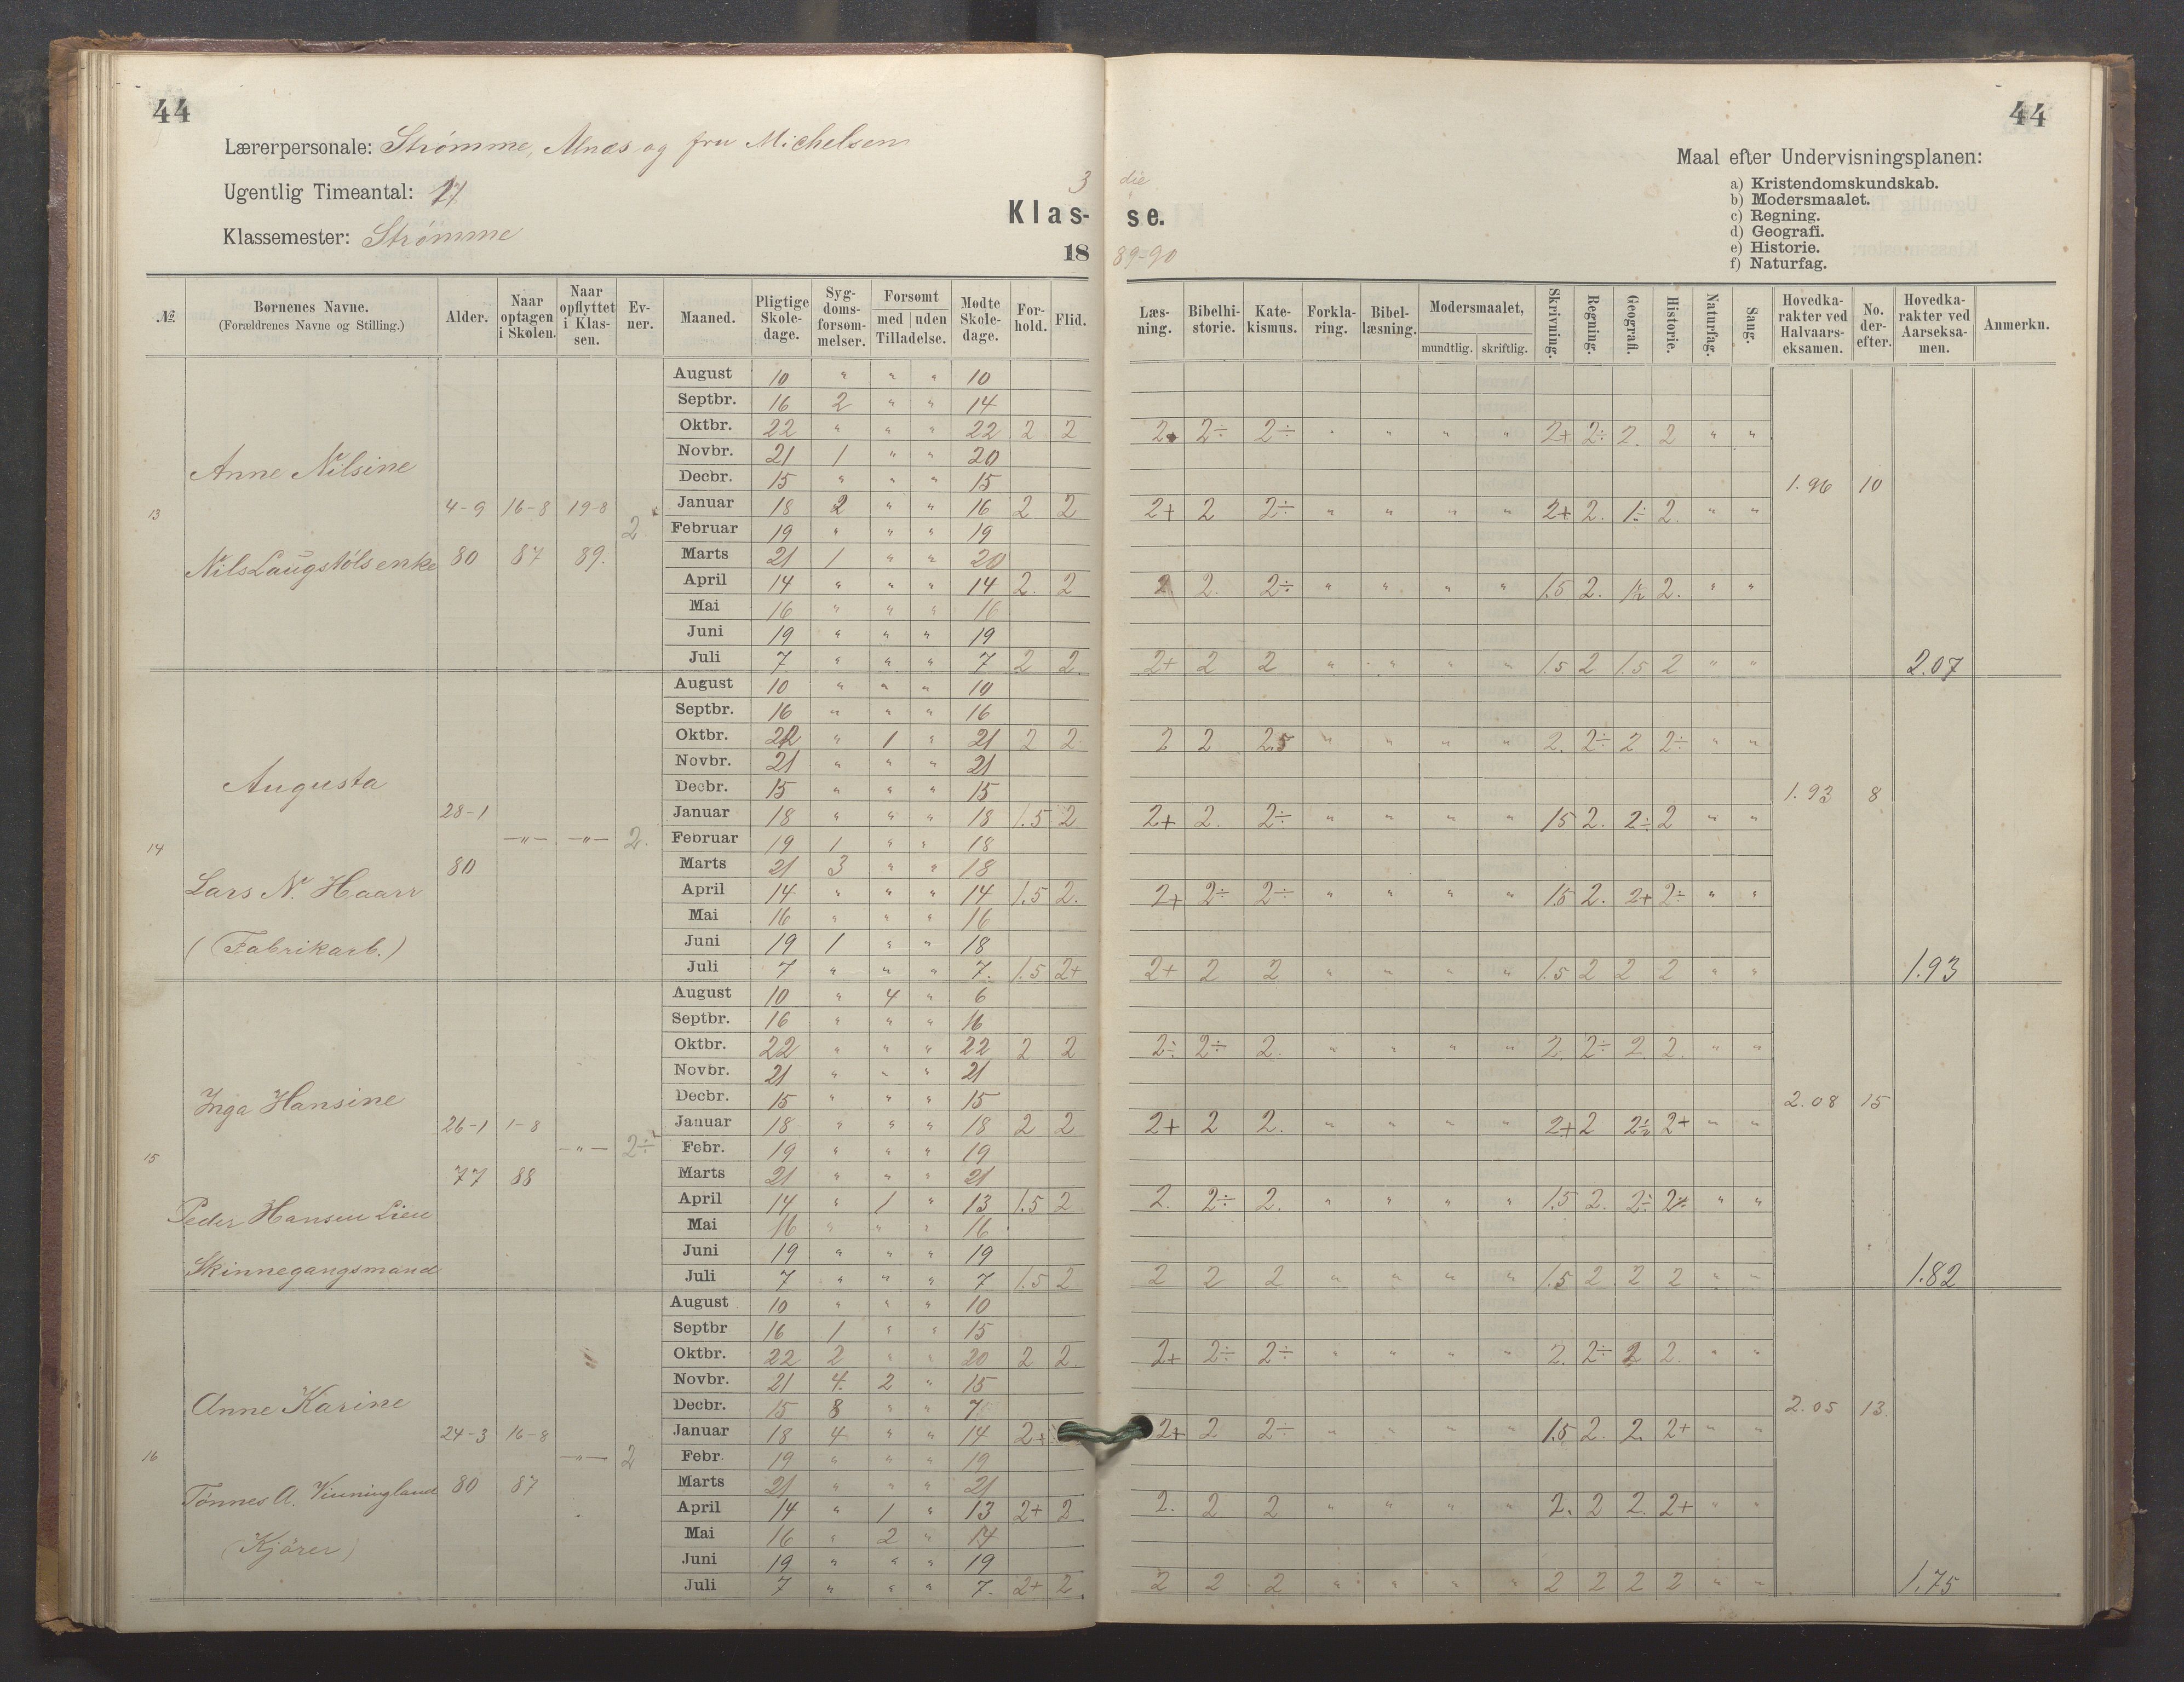 44
44
Lærerpersonale: Strømme, Alnæs og fru Michelsen
Ugentlig Timeantal: 27
Klassemester: Strømme
3 die
Klas- se.
18 89-90
Maal efter Undervisningsplanen:
a) Kristendomskundskab.
b) Modersmaalet.
c) Regning.
d) Geografi.
e) Historie.
f) Naturfag.
№. Børnenes Navne. (Forældrenes Navne og Stilling.) Alder. Naar optagen i Skolen. Naar opflyttet i Klassen. Evner. Maaned. Pligtige Skoledage. Sygdomsforsømmelser. Forsømt med uden Tilladelse. Mødte Skoledage. Forhold. Flid. Læsning. Bibelhistorie. Katekismus. Forklaring. Bibellæsning. Modersmaalet, mundtlig. skriftlig. Skrivning. Regning. Geografi. Historie. Naturfag. Sang. Hovedkarakter ved Halvaarseksamen. No. derefter. Hovedkarakter ved Aarseksamen. Anmerkn.
13 Anne Nilsine
Nils Laugstøls enke
4-9 80 16-8 87 19-8 89. 2
August 10 " " " 10
Septbr. 16 2 " " 14
Oktbr. 22 " " " 22 2 2 2+ 2÷ 2÷ " " " " 2+ 2÷ 2. 2 " "
Novbr. 21 1 " " 20
Decbr. 15 " " " 15 1.96 10
Januar 18 2 " " 16 2 2 2+ 2 2÷ " " " " 2+ 2. 1÷ 2. " "
Februar 19 " " " 19
Marts 21 1 " " 20
April 14 " " " 14 2. 2 2 2. 2÷ " " " " 1.5 2. 2. " "
Mai 16 " " " 16
Juni 19 " " " 19
Juli 7 " " " 7 2 2. 2+ 2 2 " " " " 1.5 2 1.5 2 " " 2.07
14 Augusta
Lars N. Haarr
(Fabrikarb.)
28-1 80 -"- -"- 2.
August 10 " " " 10
Septbr. 16 " " " 16
Oktbr. 22 " 1 " 21 2 2. 2 2 2.5 " " " " 2. 2÷ 2 2÷ " "
Novbr. 21 " " " 21
Decbr. 15 " " " 15 1.93 8
Januar 18 " " " 18 1.5 2 2+ 2. 2÷ " " " " 1.5 2. 2÷ 2 " "
Februar 19 1 " " 18
Marts 21 3 " " 18
April 14 " " " 14 1.5 2. 2+ 2÷ 2÷ " " " " 1.5 2. 2+ 2÷ " "
Mai 16 " " " 16
Juni 19 1 " " 18
Juli 7 " " " 7. 1.5 2+ 2+ 2 2 " " " " 1.5 2 2 2 " " 1.93
15 Inga Hansine
Peder Hansen Lien
Skinnegangsmand
26-1 77 1-8 88 -"- 2÷
August 10 " 4 " 6
Septbr. 16 " " " 16
Oktbr. 22 " " " 22 2 2 2÷ 2÷ 2. " " " " 2. 2÷ 2. 2. " "
Novbr. 21 " " " 21
Decbr. 15 " " " 15 2.08 15
Januar 18 " " " 18 2 2 2+ 2 2. " " " " 2+ 2 2÷ 2+ " "
Febr. 19 " " " 19
Marts 21 " " " 21
April 14 " 1 " 13 1.5 2 2. 2÷ 2. " " " " 1.5 2. 2÷ " "
Mai 16 " " " 16
Juni 19 " " " 19
Juli 7 " " " 7 1.5 2 2 2 2 " " " " 1.5 2 2 2 " " 1.82
16 Anne Karine
Tönnes A. Vinningland
(Kjörer)
24-3 80 16-8 87 -"- 2
August 10 " " " 10
Septbr 16 1 " " 15
Oktbr. 22 2 " " 20 2 2. 2+ 2÷ 2÷ " " " " 2. 2÷ 2 2. " "
Novbr. 21 4. 2 " 15
Decbr. 15 8 " " 7 2.05 13
Januar 18 4 " " 14 2+ 2+ 2 2÷ " " " " 1.5 2. 2. 2+ " "
Febr. 19 " " " 19
Marts 21 " " " 21
April 14 " 1 " 13 2+ 2 2. 2 2 " " " " 2. 2 2. 2+ " "
Mai 16 " 2 " 14
Juni 19 " " " 19
Juli 7 " " " 7. 2+ 2 2 2 2 " " " " 2 2 2 2 " " 1.75